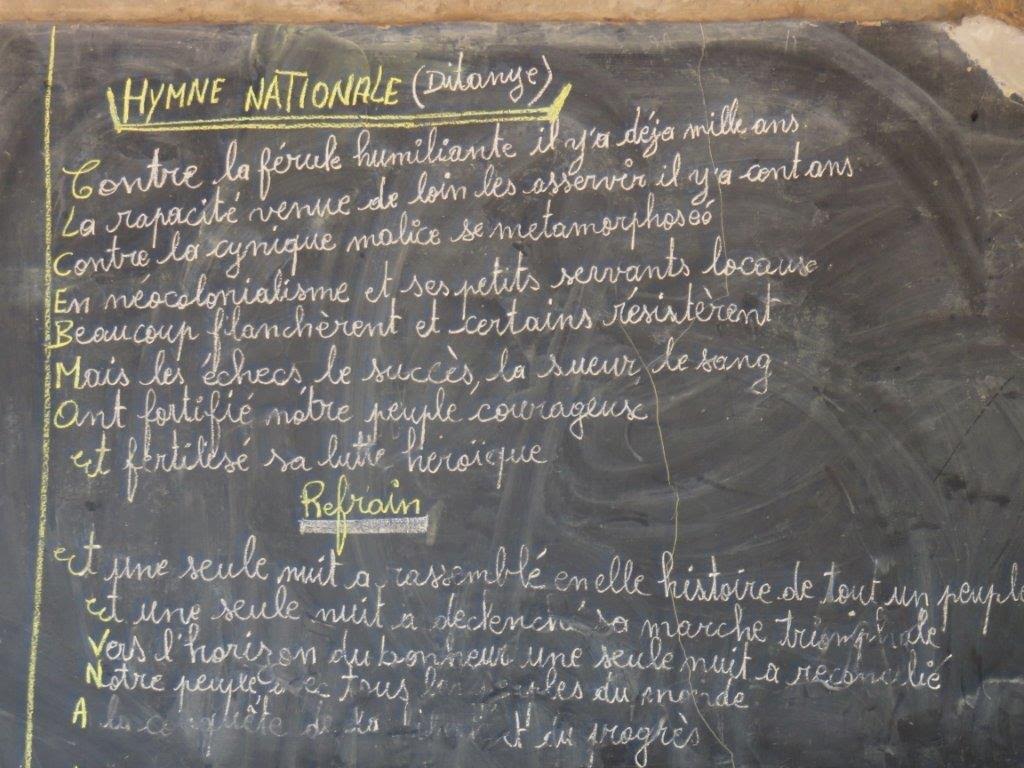 HYMNE NATIONALE (Ditanye)
Contre la férule humiliante il y'a déja mille ans
La rapacité venue de loin les asservir il y'a cent ans
Contre la cynique malice se metamorphoséé
En néocolonialisme et ses petits servants locaux
Beaucoup flanchèrent et certains résistèrent
Mais les échecs, le succès, la sueur, le sang
Ont fortifié nôtre peuple courageux
et fertilisé sa lutte heroïque
Refrain
et une seule nuit a rassemblé en elle histoire de tout un peuple
et une seule nuit a déclenché sa marche triomphale
Vers l'horizon du bonheur une seule nuit a reconcilié
Notre peuple avec tous les peuples du monde
A la conquête de la et du progrès